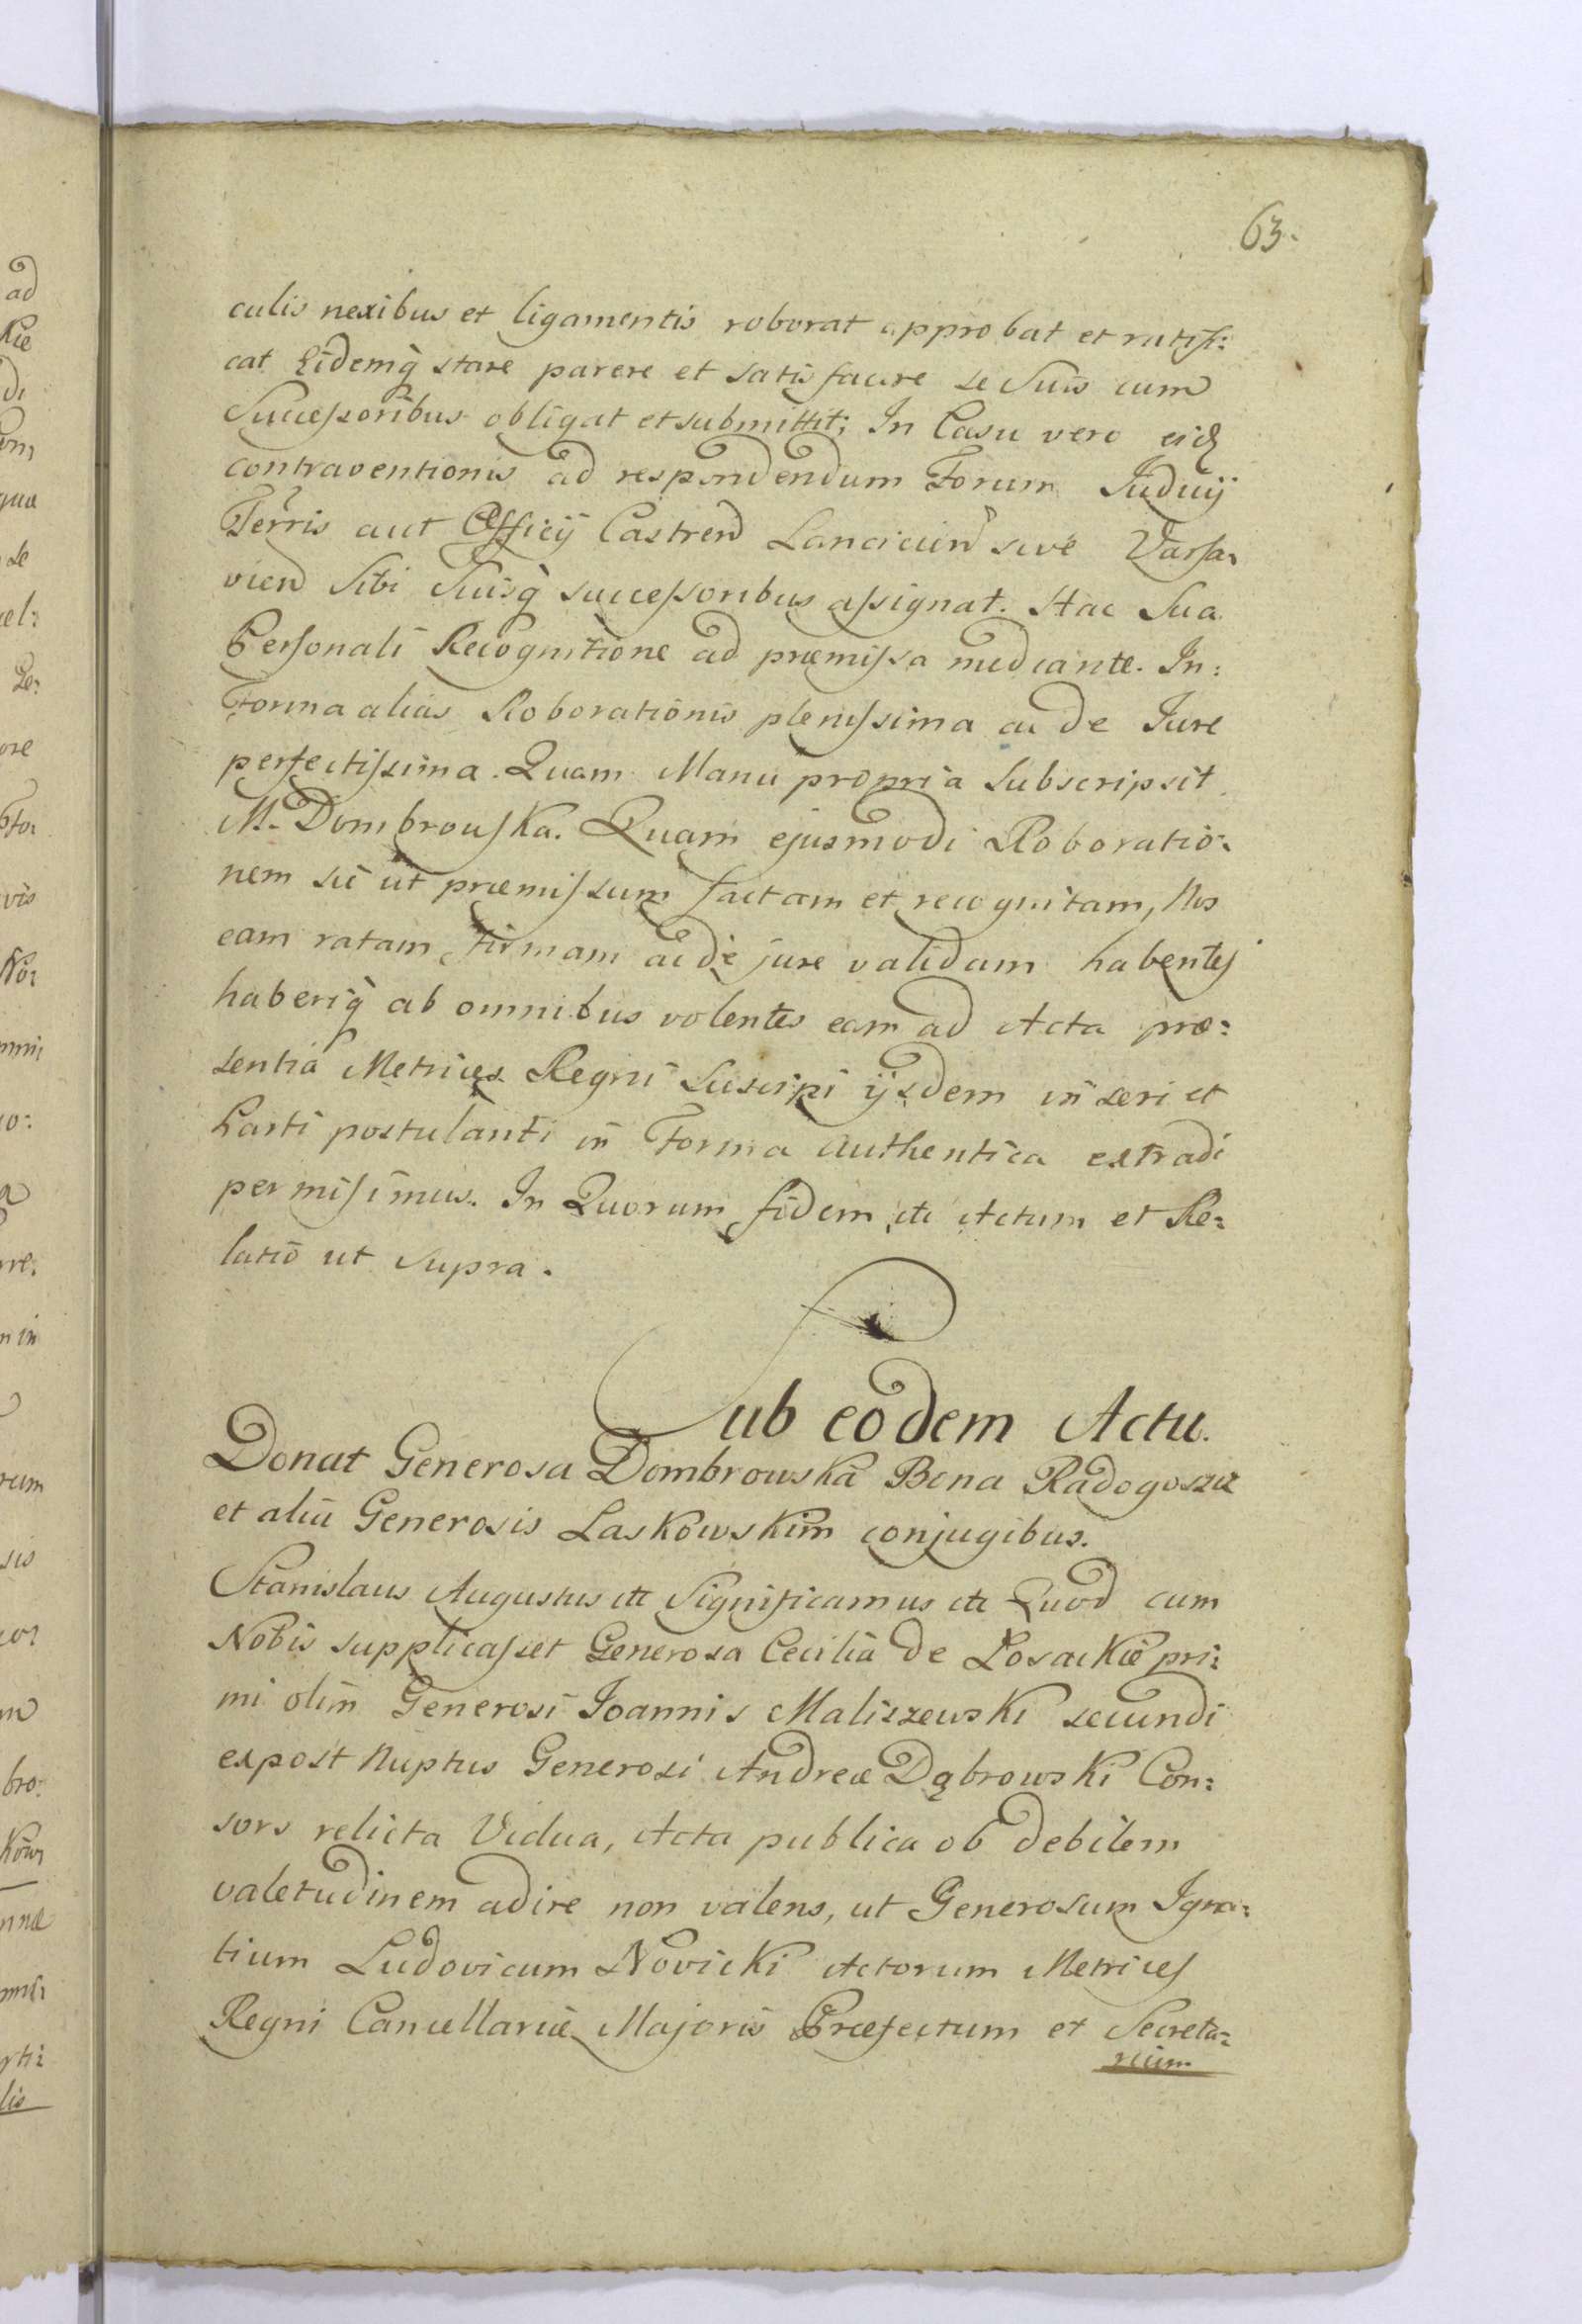 63.
culis nexibus et ligamentis roborat approbat et ratifi:
cat Eidemq̀ stare parere et satisfacere se Suis cum
Successoribus obligat et submittit; In Casu vero
contraventionis ad respondendum Forum Judicij
Terris aut Officij Castren Lancicien sive Varsa:
vien Sibi Suisq̀ successoribus assignat. Hac Sua
Personali Recognitione ad præmissa mediante. In:
Forma alias Roborationis plenissima ac de Jure
perfectissima. Quam Manu propria Subscripsit.
M. Dombrowska. Quam ejusmodi Roboratio:
nem sic ut præmissum factam et recognitam, Nos
eam ratam, firmam ac de jure validam habentes
haberiq̀ ab omnibus volentes eam ad Acta præ:
sentia Metrices Regni Suscipi ijsdem inseri et
Parti postulanti in Forma Authentica extradi
permisimus. In Quorum fidem etc Actum et Re:
latio ut Supra.
Sub eodem Actu.
Donat Generosa Dombrowska Bona Radogoszcz
et alia Generosis Laskowskim conjugibus.
Stanislaus Augustus etc Significamus etc Quod cum
Nobis supplicasset Generosa Cecilia de Losackie pri:
mi olim Generosi Joannis Maliszewski secundi
expost Nuptus Generosi Andreæ Dąbrowski Con:
sors relicta Vidua, Acta publica ob debilem
valetudinem adire non valens, ut Generosum Igna:
tium Ludovicum Novicki Actorum Metrices
Regni Cancellariæ Majoris Præfectum et Secreta:
rium